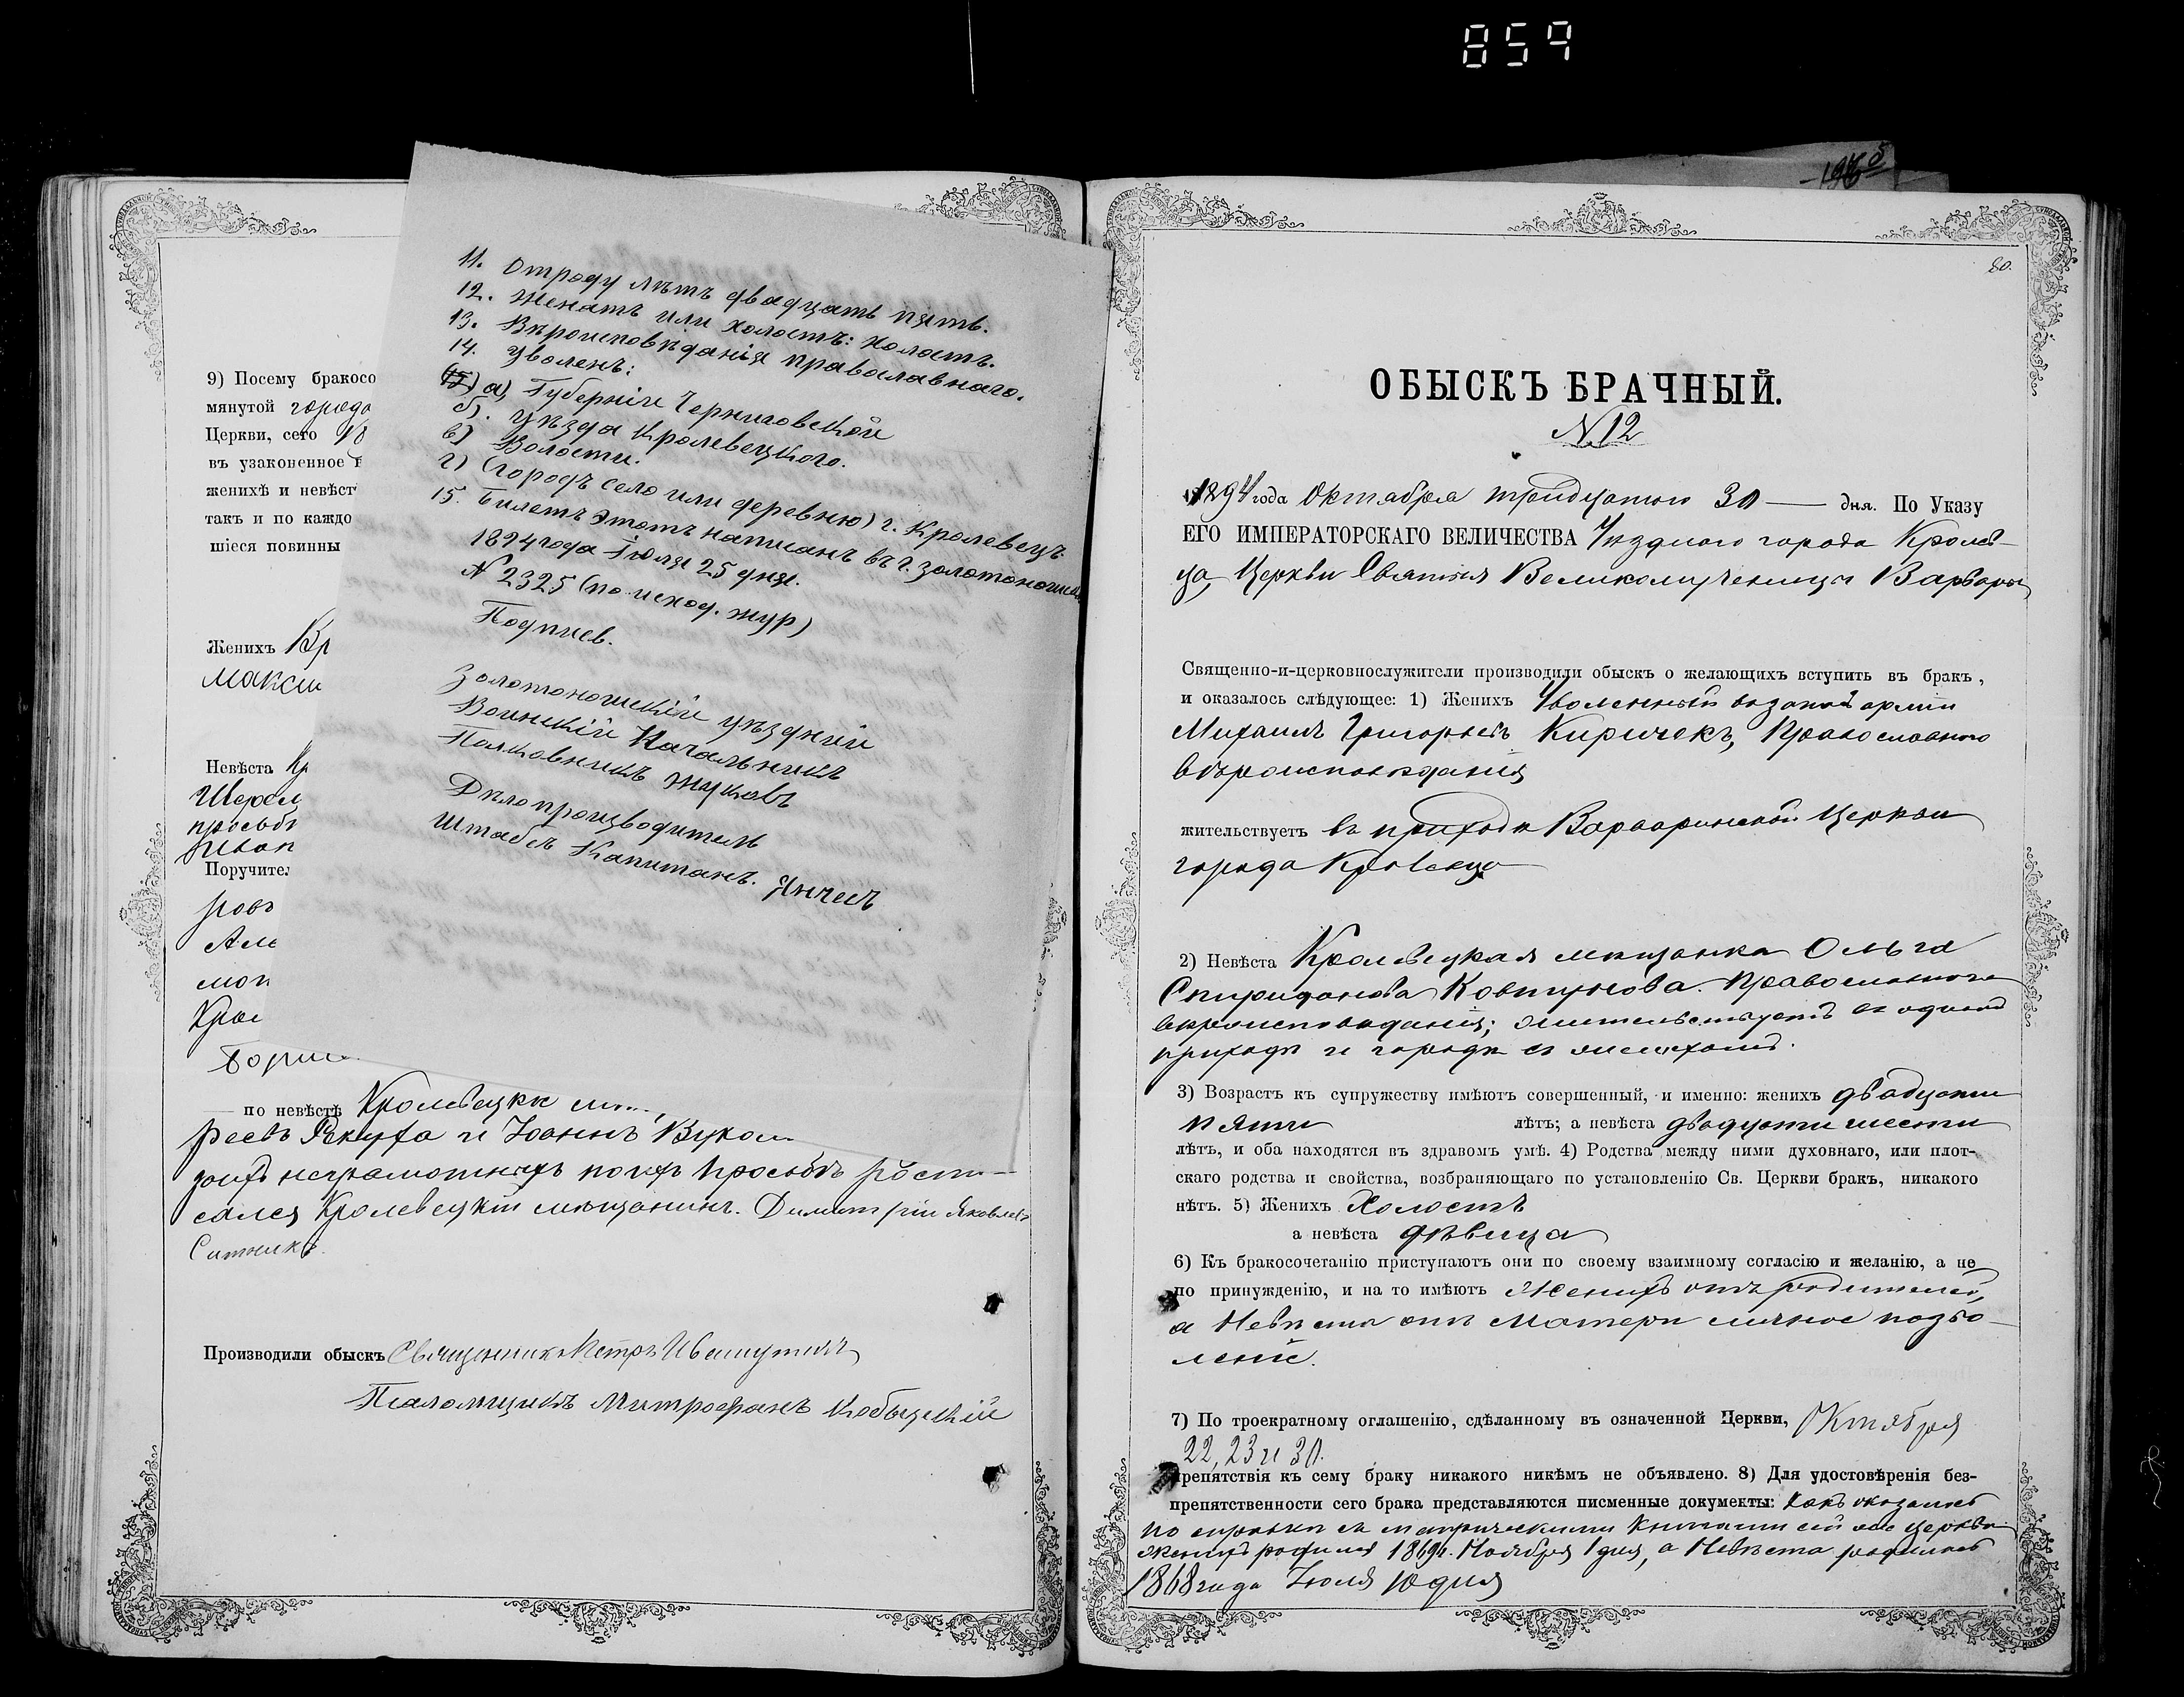 859
9) Посему бракосо
мянутой города
Церкви, сего 18
въ узаконенное
женихѣ и невѣст
такъ и по каждо
шіеся повинны
Женихъ Кр
Макси
Невѣста Кр
Шереп
просьбѣ
Иван
Поручител
ровъ
Але
мон
Крол
Бори
11. Отроду лѣтъ двадцать пять.
12. Женатъ или холостъ: холостъ.
13. Вѣроисповѣданія православнаго.
14. Уволенъ:
а) Губерніи Черниговской
б). Уѣзда Кролевецкого.
в) Волости.
г) (городъ село или деревню) г. Кролевецъ
15. Билетъ этотъ написанъ въ г. Золотоноши
1894 года Іюля 25 дня.
№ 2325 (по исход. жур)
Подпись.
Золотоношскій уѣздный
Воинскій Начальникъ
Полковникъ Жуковъ
Дѣлопроизводитель
Штабсъ Капитанъ. Янчесъ
по невѣстѣ Кролевецкіе
реевъ Рекуха и Іоаннъ Вукол
неграмотныхъ по ихъ просьбѣ роспи-
сался Кролевецкій мѣщанинъ. Димитрій Яковлевъ
Ситникъ.
Производили обыскъ Священникъ Петръ Ивашутичъ
Псаломщикъ Митрофанъ Кобыщкій
1975
80.
ОБЫСКЪ БРАЧНЫЙ.
№ 12
1894 года Октября тридцатого 30 — дня. По Указу
ЕГО ИМПЕРАТОРСКАГО ВЕЛИЧЕСТВА Уѣздного города Кролев-
ца, Церкви Святыя Великомученицы Варвары
Священно-и-церковнослужители производили обыскъ о желающихъ вступить въ бракъ,
и оказалось слѣдующее: 1) Женихъ Уволенный въ запасъ арміи
Михаилъ Григорьевъ Киричекъ, Православного
вѣроисповѣданія
жительствуетъ въ приходѣ Варваринской Церкви
города Кролевца
2) Невѣста Кролевецкая мѣщанка Ольга
Спиридонова Ковтунова. Православного
вѣроисповѣданія; жительствуетъ въ одномъ
приходѣ и городѣ съ женихомъ.
3) Возрастъ къ супружеству имѣютъ совершенный, и именно: женихъ двадцати
пяти лѣтъ; а невѣста двадцати шести
лѣтъ, и оба находятся въ здравомъ умѣ. 4) Родства между ними духовнаго, или плот-
скаго родства и свойства, возбраняющаго по установленію Св. Церкви бракъ, никакого
нѣтъ. 5) Женихъ Холостъ
а невѣста дѣвица
6) Къ бракосочетанію приступаютъ они по своему взаимному согласію и желанію, а не
по принужденію, и на то имѣютъ Женихъ отъ родителей,
а Невѣста отъ матери личное позво-
леніе.
7) По троекратному оглашенію, сдѣланному въ означенной Церкви, Октября
22, 23 и 30.
препятствія къ сему браку никакого никѣмъ не объявлено. 8) Для удостовѣренія без-
препятственности сего брака представляются писменные документы: Какъ оказалось
по справкѣ съ метрическими книгами сей же церкви
женихъ родился 1869 г. Ноября 1 дня, а Невѣста родилась
1868 года Іюля 10 дня